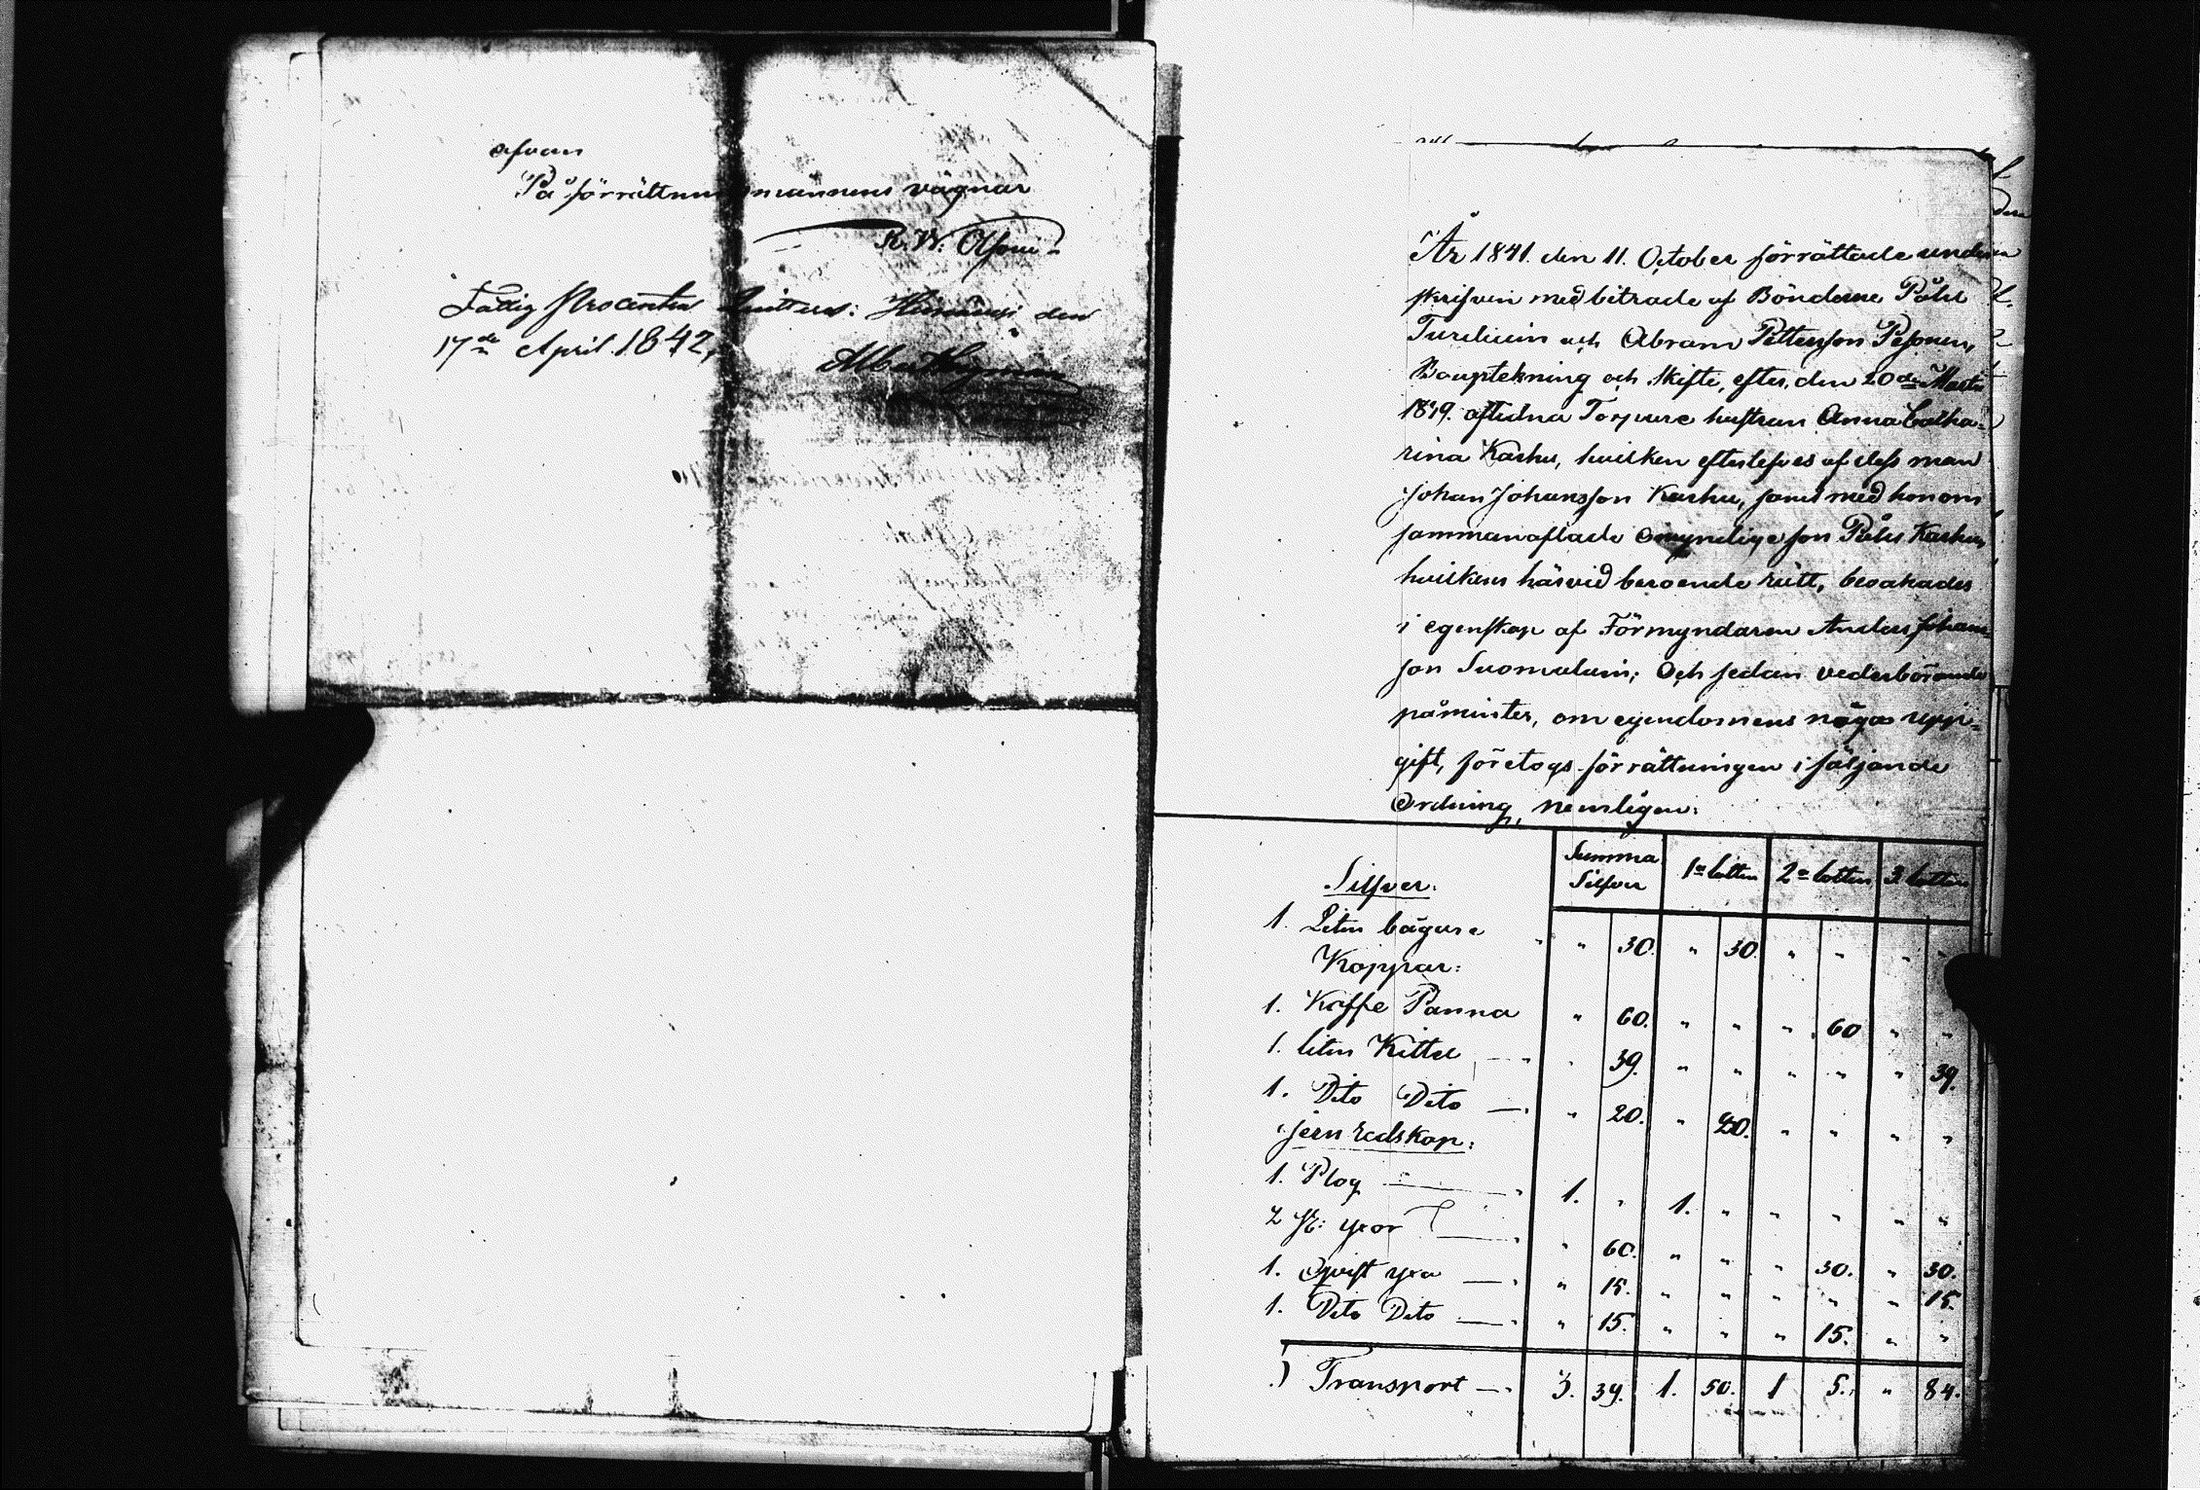 ofvan
På förrättningsmännens vägnar
R. W.
Fattig Procenten quitteras: den
17de April. 1842,
År 1841. den 11. October förrättade under
skrifven med biträde af Bönderne Påhl
och Abram Pettersson Pesonen,
Bouptekning och skifte, efter, den 20de Martii
aflidna Torpare hustrun Anna Catha-
rina Karhu, hvilken efterlefves af dess man
Johan Johansson Karhu, samt med honom
sammanaflade omyndige son Påhl Karhu,
hvilkens härvid beroende rätt, bevakades
i egenskap af Förmyndaren Anders Johans-
son Suomalain; Och sedan vederbörande
påmintes, om egendomens noga upp-
gift, företogs förrättningen i följande
Ordning, nemligen:
Silfver. Summa Silfver 1a lotten 2a lotten 3 lotten
1. Liten bägare " 30. " 30. " " " "
Koppar:
1. Kaffe Panna " 60. " " " 60 " "
1. liten Kittel " 39. " " " " " 39.
1. Dito Dito " 20. " 20. " " " "
jern redskap:
1. Plog 1. " 1. " " " " "
2 St: yxor " 60. " " " 30. " 30.
1. yxa " 15. " " " " " 15.
1. Dito Dito " 15. " " " 15. " "
Transport 3. 39. 1. 50. 1 5. " 84.